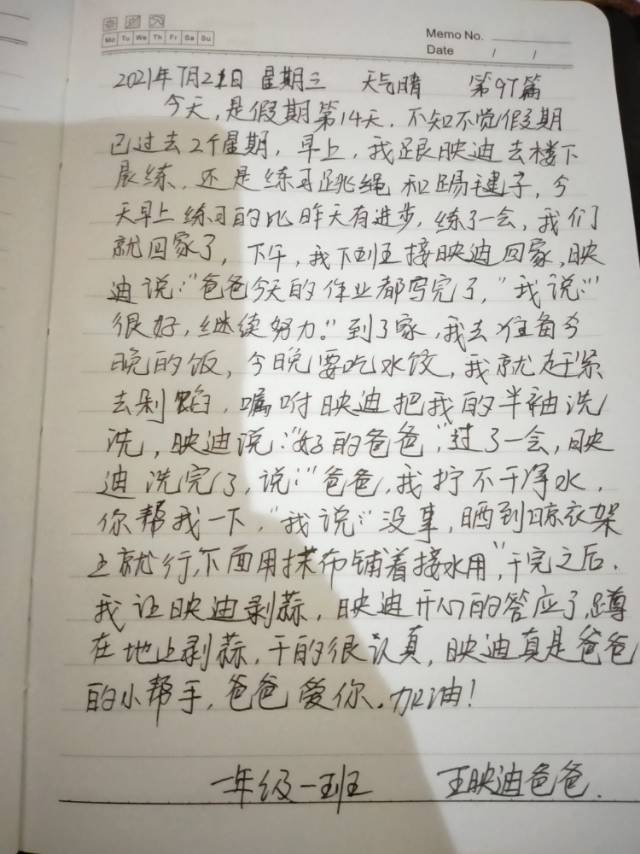 Memo No.
Mo Tu We Th Fr Sa Su
Date / /
2021年7月21日 星期三 天气晴 第97篇
今天,是假期第14天,不知不觉假期
已过去2个星期,早上,我跟映迪去楼下
晨练,还是练习跳绳和踢毽子,今
天早上练习的比昨天有进步,练了一会,我们
就回家了,下午,我下班接映迪回家,映
迪说:“爸爸今天的作业都写完了,”我说:“
很好,继续努力。”到了家,我去准备今
晚的饭,今晚要吃水饺,我就赶紧
去剁馅,嘱咐映迪把我的半袖洗
洗,映迪说:“好的爸爸,”过了一会,映
迪洗完了,说:“爸爸,我拧不干净水,
你帮我一下,”我说:“没事,晒到晾衣架
上就行,下面用抹布铺着接水用”,干完之后,
我让映迪剥蒜,映迪开心的答应了,蹲
在地上剥蒜,干的很认真,映迪真是爸爸
的小帮手,爸爸爱你,加油!
一年级一班 王映迪爸爸.